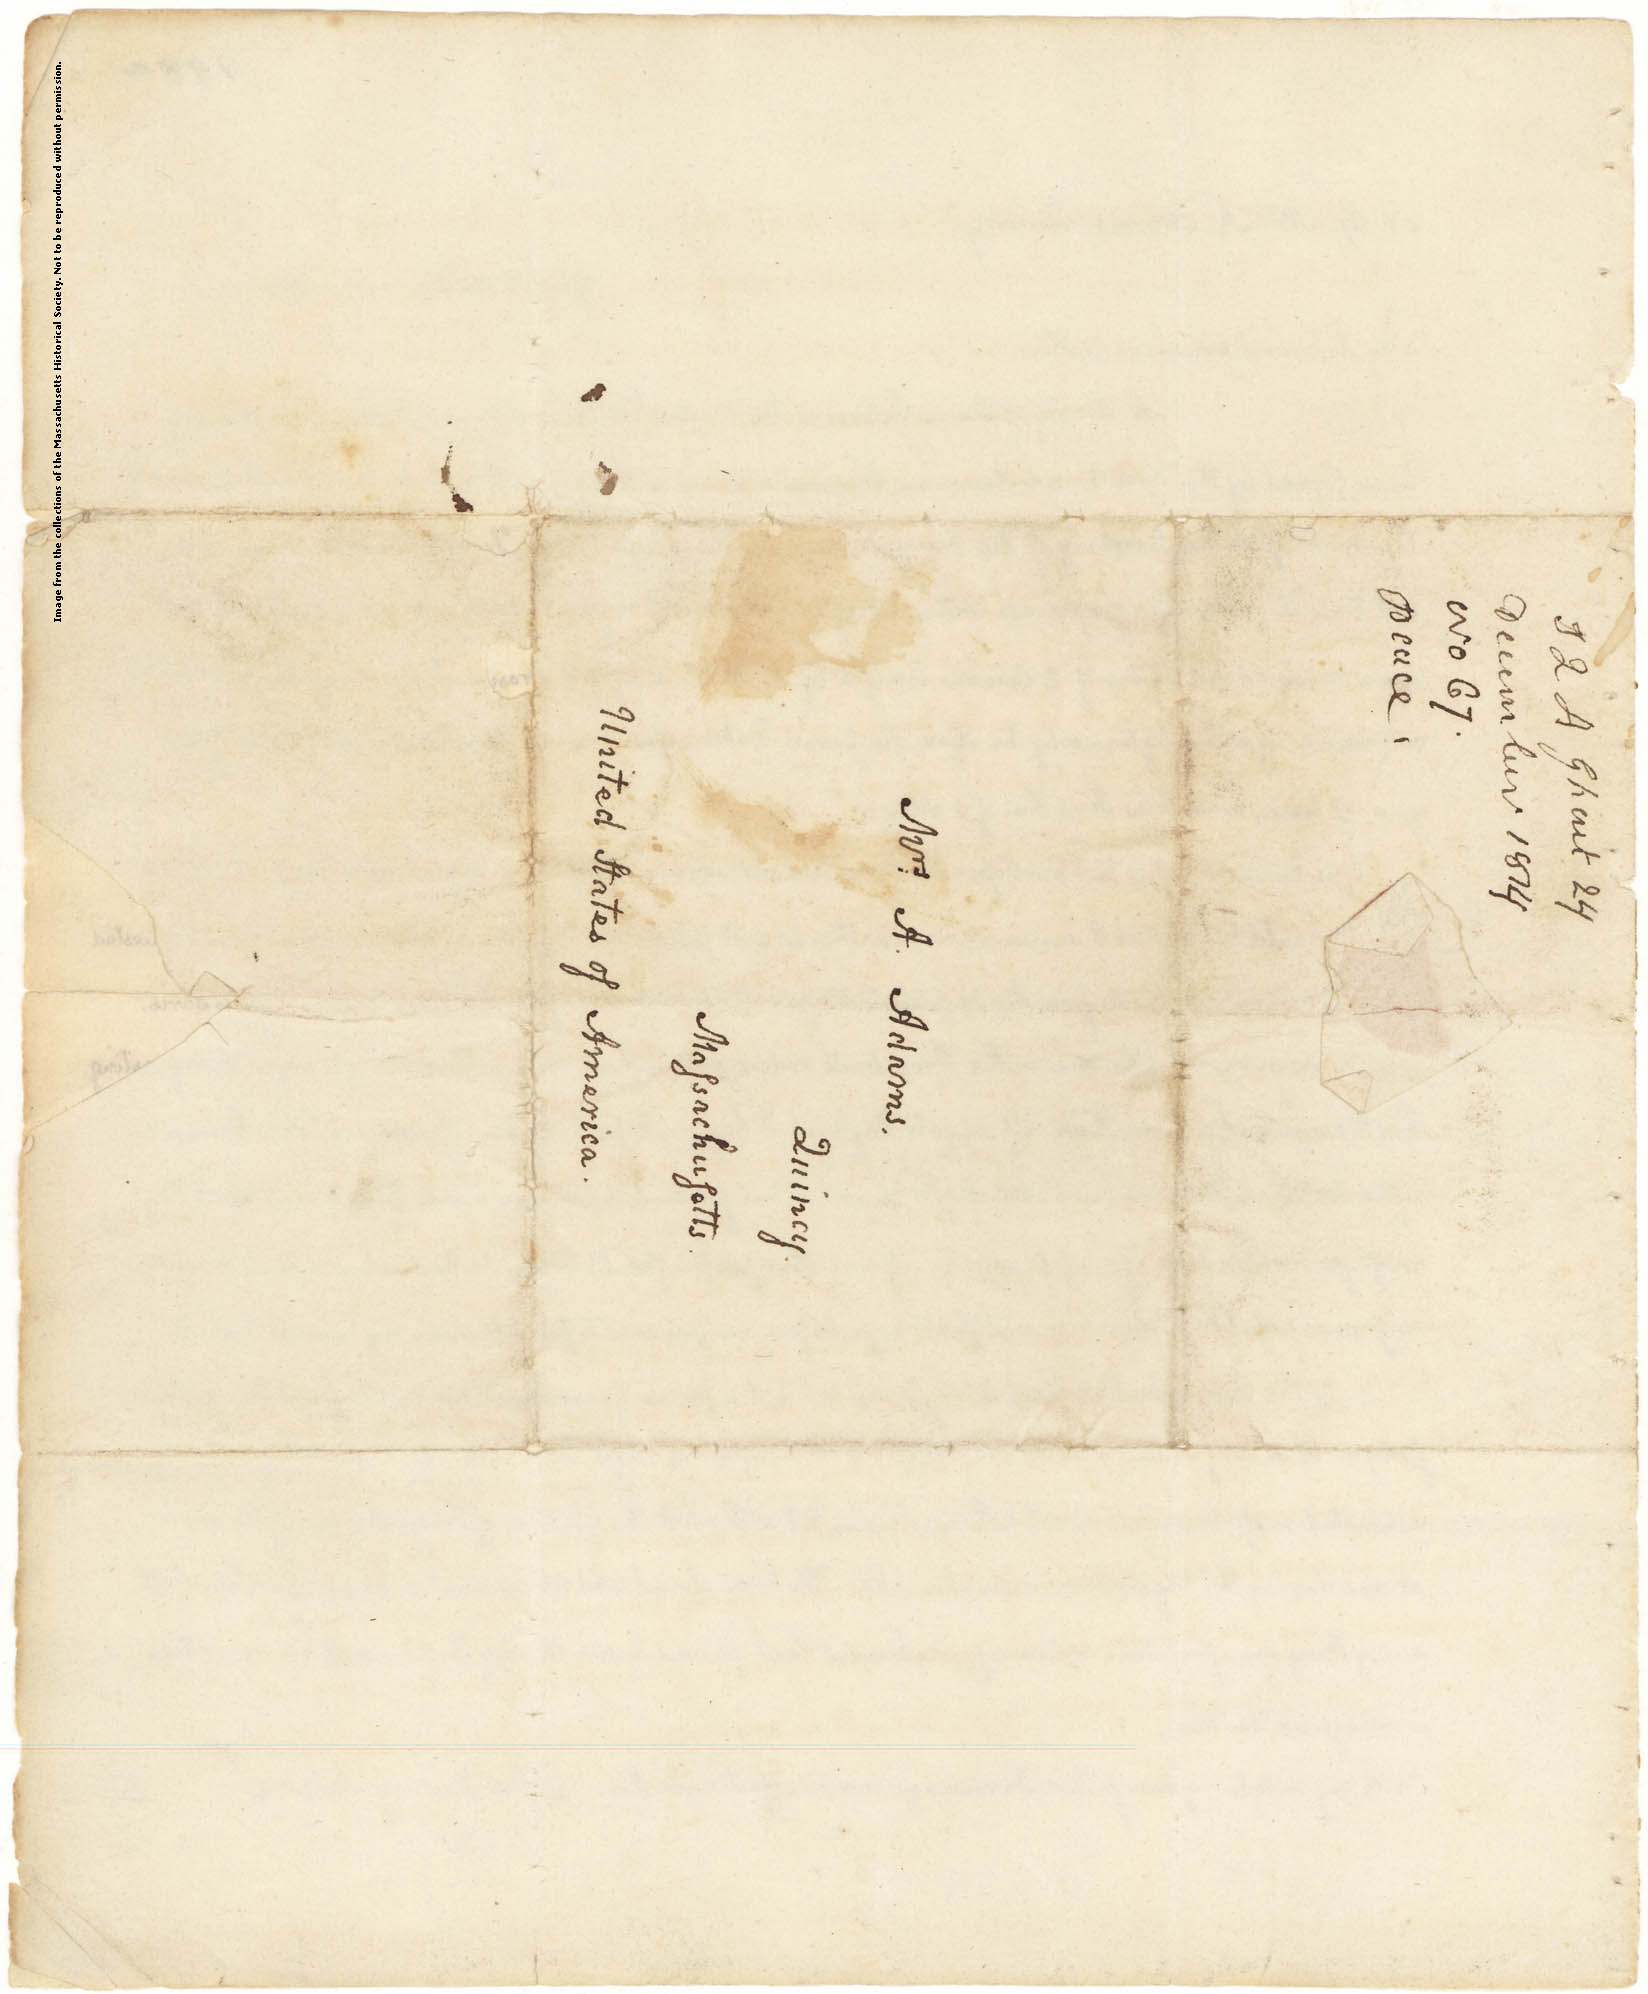 J Q A Ghent 24
December 1814
No 67.
peace!
Mrs. A. Adams.
Quincy.
Massachusetts.
United States of America.
Image from the collections of the Massachusetts Historical Society. Not to be reproduced without permission.